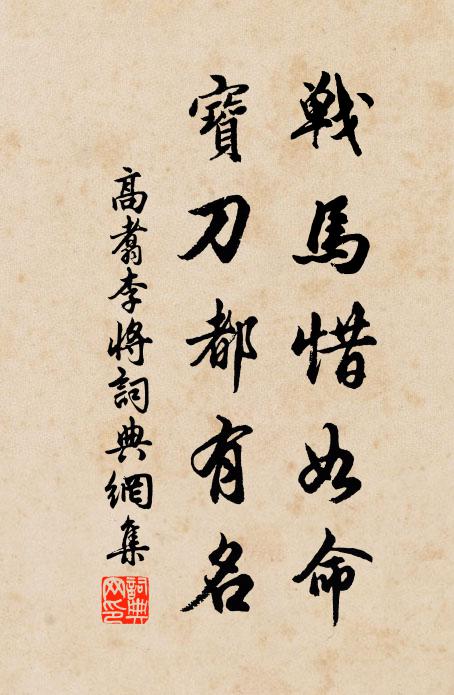 戰馬惜如命
寶刀都有名
高翥李將詞典網集
詞典網印